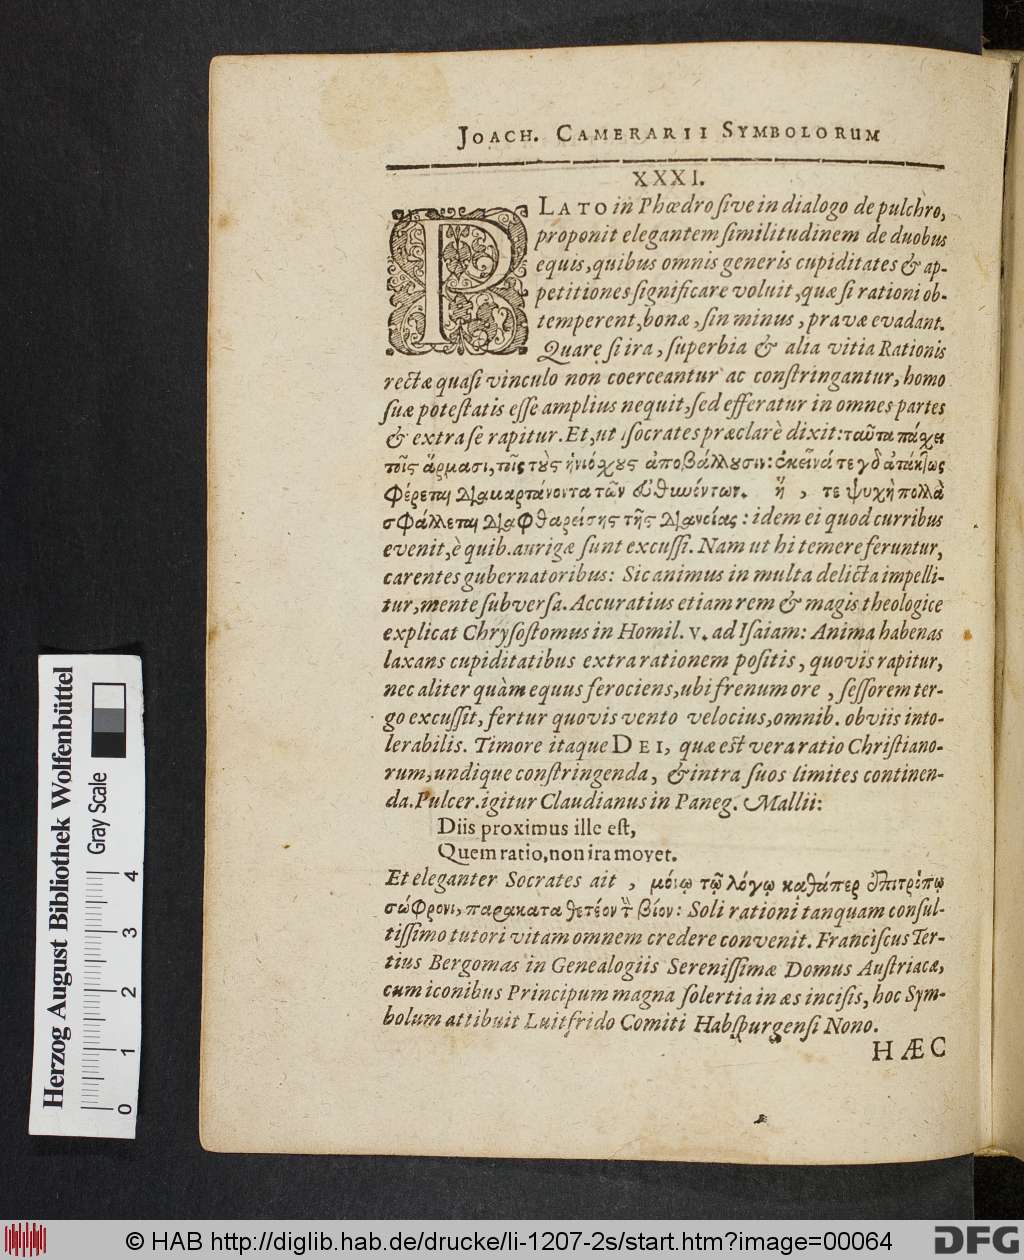 JOACH. CAMERARII SYMBOLORUM
XXXI.
PLATO in Phœdro ſive in dialogo de pulchro,
proponit elegantem ſimilitudinem de duobus
equis, quibus omnis generis cupiditates & ap-
petitiones ſignificare voluit, quæ ſi rationi ob-
temperent, bonæ, ſin minus, pravæ evadant.
Quare ſi ira, ſuperbia & alia vitia Rationis
rectæ quaſi vinculo non coerceantur ac conſtringantur, homo
ſuæ poteſtatis eſſe amplius nequit, ſed efferatur in omnes partes
& extra ſe rapitur. Et, ut Iſocrates præclarè dixit: ταῦτα πάχει
τοῖς ἅρμασι, τοῖς τοὺς ἡνιόχους ἀποβάλλουσιν: ἐκεῖνά τε γὸ ἀτάκτως
φέρεται διαμαρτάνοντα τῶν εὐθυνόντων. ἥ, τε ψυχὴ πολλὰ
σφάλλεται διαφθαρείσης τῆς διανοίας: idem ei quod curribus
evenit, è quib. aurigæ ſunt excuſſi. Nam ut hi temere feruntur,
carentes gubernatoribus: Sic animus in multa delicta impelli-
tur, mente ſubverſa. Accuratius etiam rem & magis theologice
explicat Chryſoſtomus in Homil. V. ad Iſaiam: Anima habenas
laxans cupiditatibus extra rationem poſitis, quovis rapitur,
nec aliter quàm equus ferociens, ubi frenum ore, ſeſſorem ter-
go excuſſit, fertur quovis vento velocius, omnib. obviis into-
lerabilis. Timore itaque DEI, quæ eſt vera ratio Chriſtiano-
rum, undique conſtringenda, & intra ſuos limites continen-
da. Pulcer. igitur Claudianus in Paneg. Mallii:
Diis proximus ille eſt,
Quem ratio, non ira movet.
Et eleganter Socrates ait, μόνῳ τῷ λόγῳ καθάπερ ἐπιτρόπῳ
σώφρονι, παρακαταθετέον τὸν βίον: Soli rationi tanquam conſul-
tiſſimo tutori vitam omnem credere convenit. Franciſcus Ter-
tius Bergomas in Genealogiis Sereniſſimæ Domus Auſtriacæ,
cum iconibus Principum magna ſolertia in æs inciſis, hoc Sym-
bolum attibuit Luitfrido Comiti Habſpurgenſi Nono.
HÆC
Herzog August Bibliothek Wolfenbüttel
Gray Scale
0 1 2 3 4
© HAB http://diglib.hab.de/drucke/li-1207-2s/start.htm?image=00064
DFG